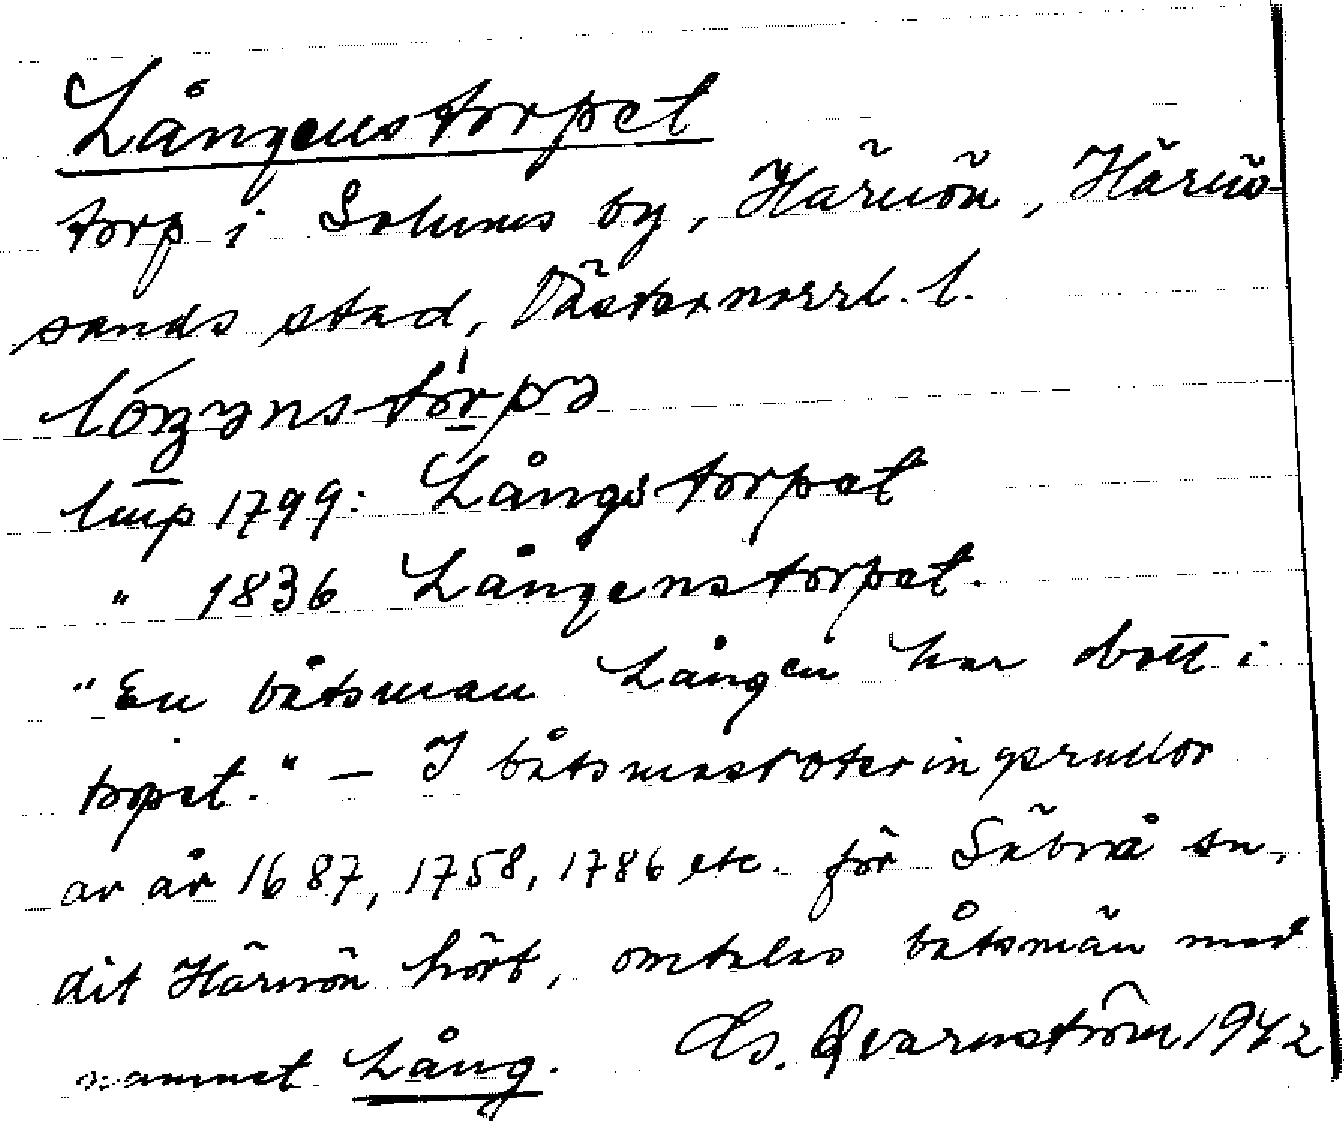 Långenstorpet
torp i Solums by, Härnön, Härnö-
sands stad, Västernorrl. l.
lmp 1799: Långstorpet
" 1836 Långenstorpet.
"En båtsman Lången har bott i
torpet." – I båtsmansroteringsrullor
av år 1687, 1758, 1786 etc. för Säbrå sn,
dit Härnön hört, omtalas båtsmän med
namnet Lång. Qvarnström 1942